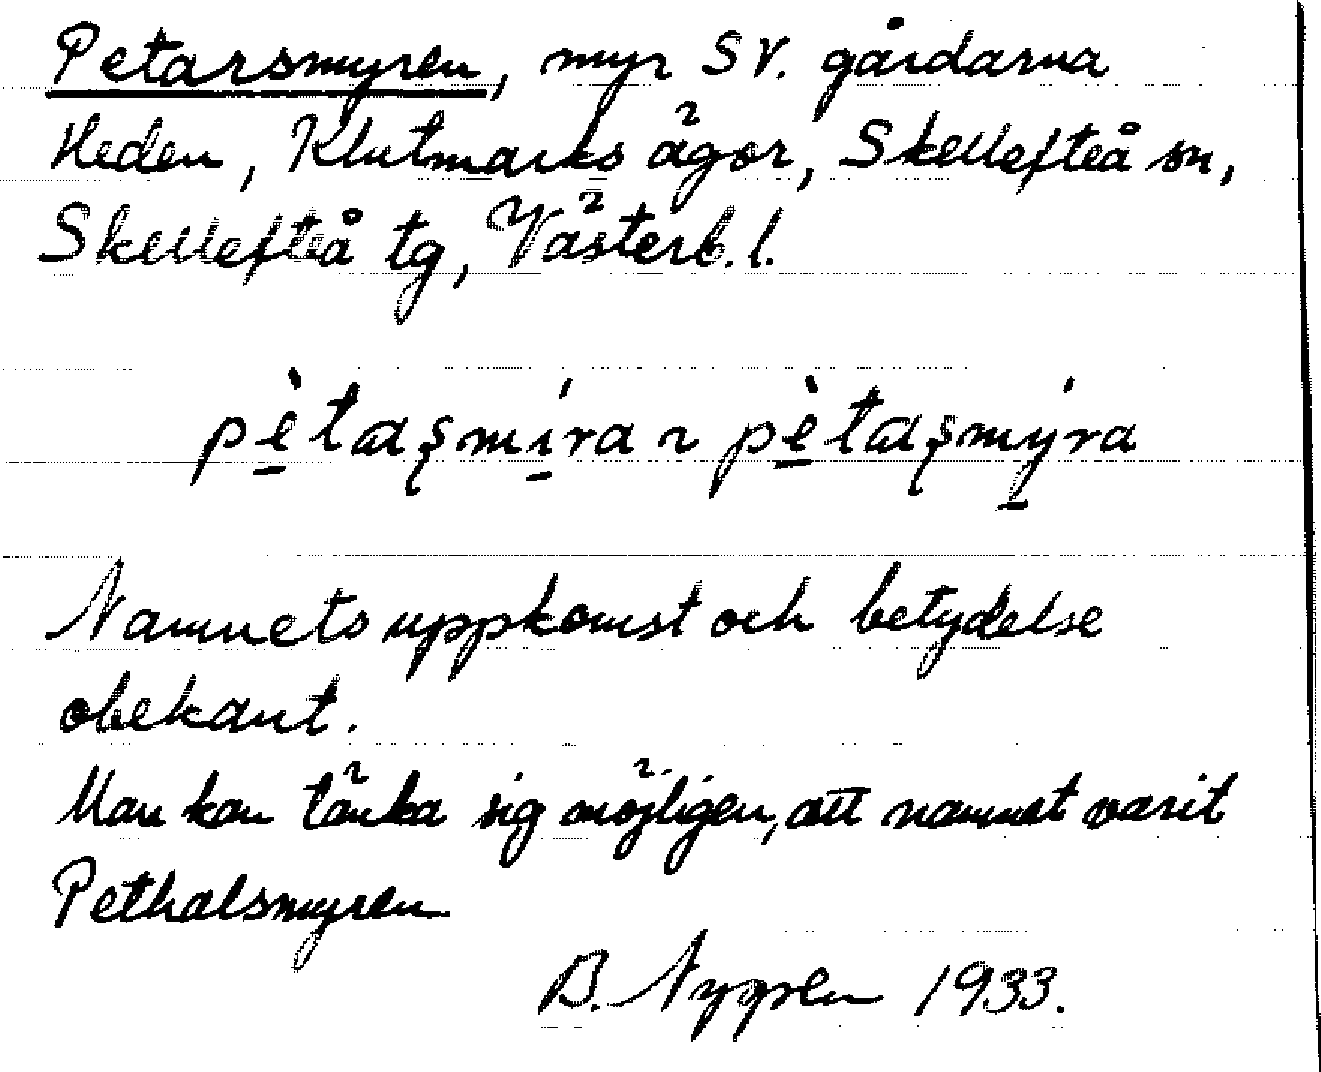 Petarsmyren, myr SV. gårdarna
Heden, Klutmarks ägor, Skellefteå sn,
Skellefteå tg, Västerb. l.
pètaʂmíra ~ pètaʂmýra
Namnets uppkomst och betydelse
obekant.
Man kan tänka sig möjligen, att namnet varit
Pethalsmyren
B. Nygren 1933.